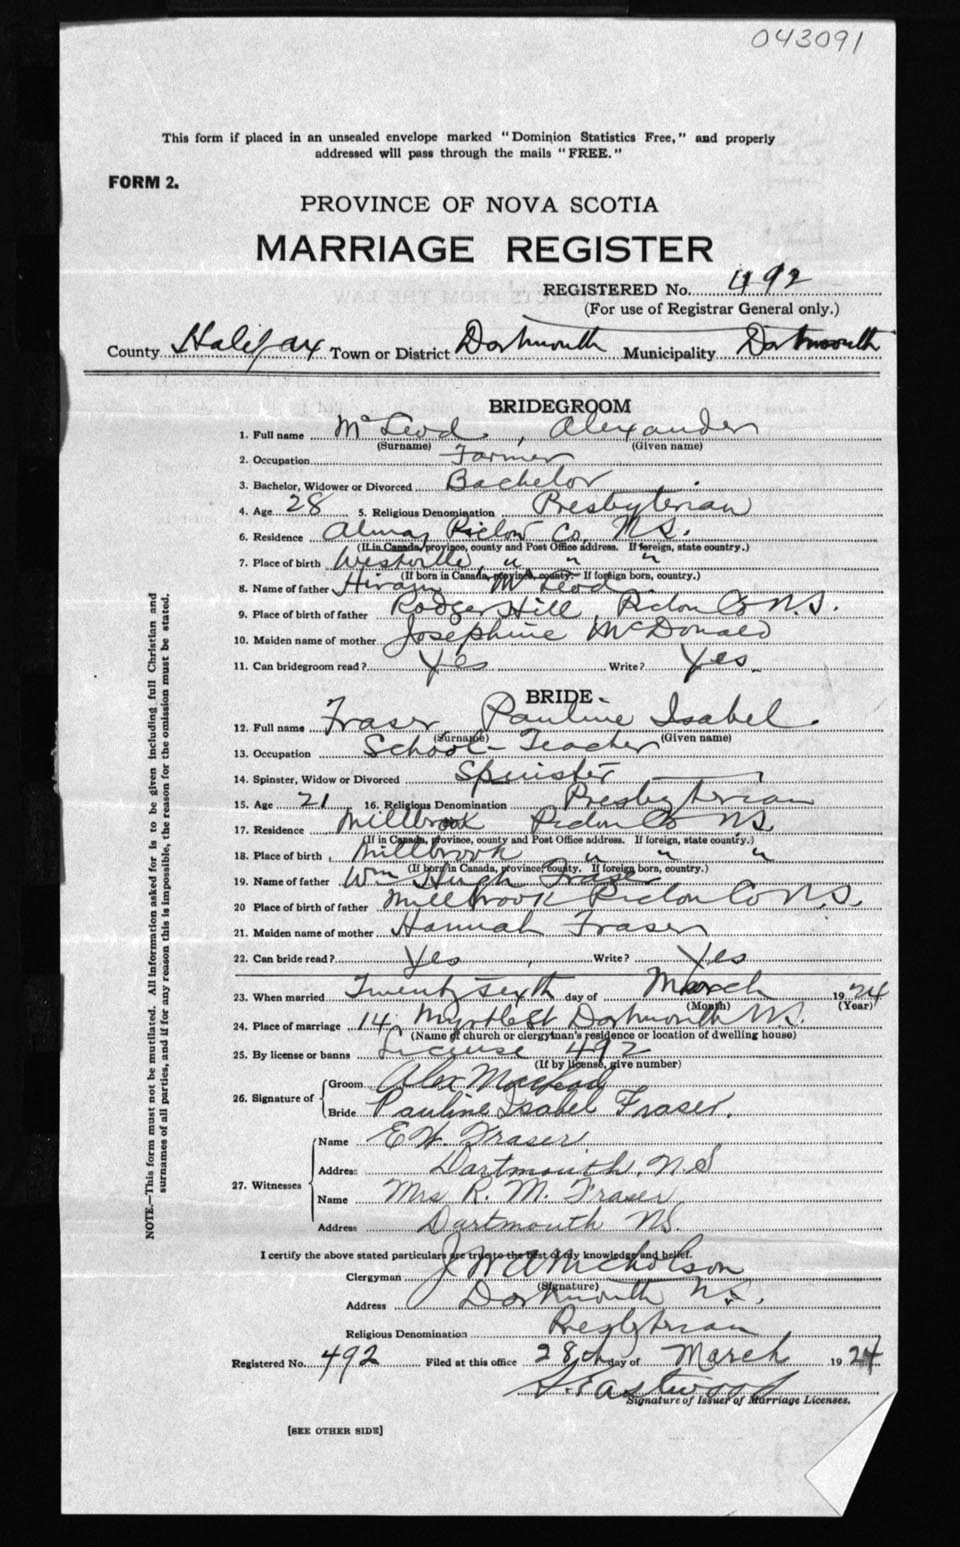 043091
This form if placed in an unsealed envelope marked "Dominion Statistics Free," and properly
addressed will pass through the mails "FREE."
FORM 2.
PROVINCE OF NOVA SCOTIA
MARRIAGE REGISTER
REGISTERED No. 492
(For use of Registrar General only.)
County Halifax Town or District Dartmouth Municipality Dartmouth
BRIDEGROOM
1. Full name McLeod, Alexander
(Surname) (Given name)
2. Occupation Farmer
3. Bachelor, Widower or Divorced Bachelor
4. Age 28 5. Religious Denomination Presbyterian
6. Residence Alma, Pictou Co, N.S.
(If in Canada, province, county and Post Office address. If foreign, state country.)
7. Place of birth Westville, " " "
(If born in Canada, province, county. If foreign born, country.)
8. Name of father Hiram McLeod
9. Place of birth of father Rodgers Hill Pictou Co N.S.
10. Maiden name of mother Josephine McDonald
11. Can bridegroom read? Yes Write? Yes
BRIDE
12. Full name Fraser Pauline Isabel.
(Surname) (Given name)
13. Occupation School-Teacher
14. Spinster, Widow or Divorced Spinster
15. Age 21 16. Religious Denomination Presbyterian
17. Residence Millbrook Pictou Co N.S.
(If in Canada, province, county and Post Office address. If foreign, state country.)
18. Place of birth Millbrook " " "
(If born in Canada, province, county. If foreign born, country.)
19. Name of father Wm Hugh Fraser
20 Place of birth of father Millbrook Pictou Co N.S.
21. Maiden name of mother Hannah Fraser
22. Can bride read? Yes Write? Yes
23. When married Twenty sixth day of March 1924
(Month) (Year)
24. Place of marriage 14, Myrtle St Dartmouth N.S.
(Name of church or clergyman's residence or location of dwelling house)
25. By license or banns License 492
(If by license, give number)
26. Signature of Groom Alex MacLeod
Bride Pauline Isabel Fraser.
27. Witnesses Name E W. Fraser
Address Dartmouth, N.S
Name Mrs R. M. Fraser
Address Dartmouth NS.
I certify the above stated particulars are true to the best of my knowledge and belief.
Clergyman J W A Nicholson
(Signature)
Address Dartmouth N.S.
Religious Denomination Presbyterian
Registered No. 492 Filed at this office 28th day of March 1924
Eastwood
Signature of Issuer of Marriage Licenses.
[SEE OTHER SIDE]
NOTE.—This form must not be mutilated. All information asked for is to be given including full Christian and
surnames of all parties, and if for any reason this is impossible, the reason for the omission must be stated.